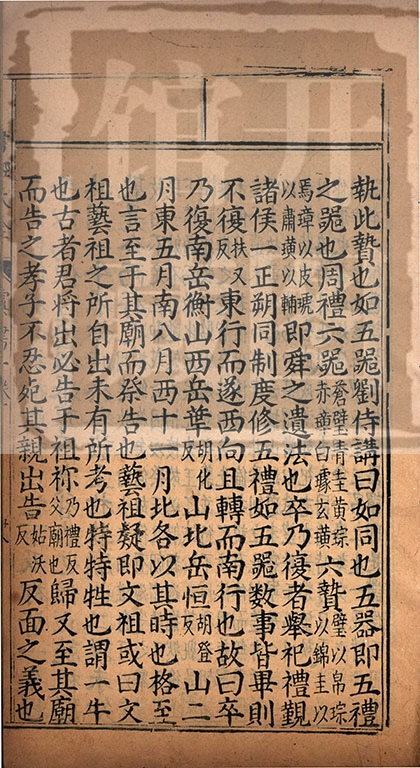 執此贄也如五噐劉侍講曰如同也五器即五禮
之噐也周禮六噐蒼璧青圭黃琮赤璋白琥玄璜六贄璧以帛琮以錦圭以
馬璋以皮琥以繡璜以黼即舜之遺法也卒乃復者舉祀禮覲
諸侯一正朔同制度修五禮如五噐数事皆畢則
不復扶又反東行而遂西向且轉而南行也故曰卒
乃復南岳衡山西岳華胡化反山北岳恒胡登反山二
月東五月南八月西十一月北各以其時也格至
也言至于其廟而祭告也藝祖疑即文祖或曰文
祖藝祖之所自出未有所考也特特牲也謂一牛
也古者君将出必告于祖祢乃禮反父廟也歸又至其廟
而告之孝子不忍死其親出告姑沃反反面之義也